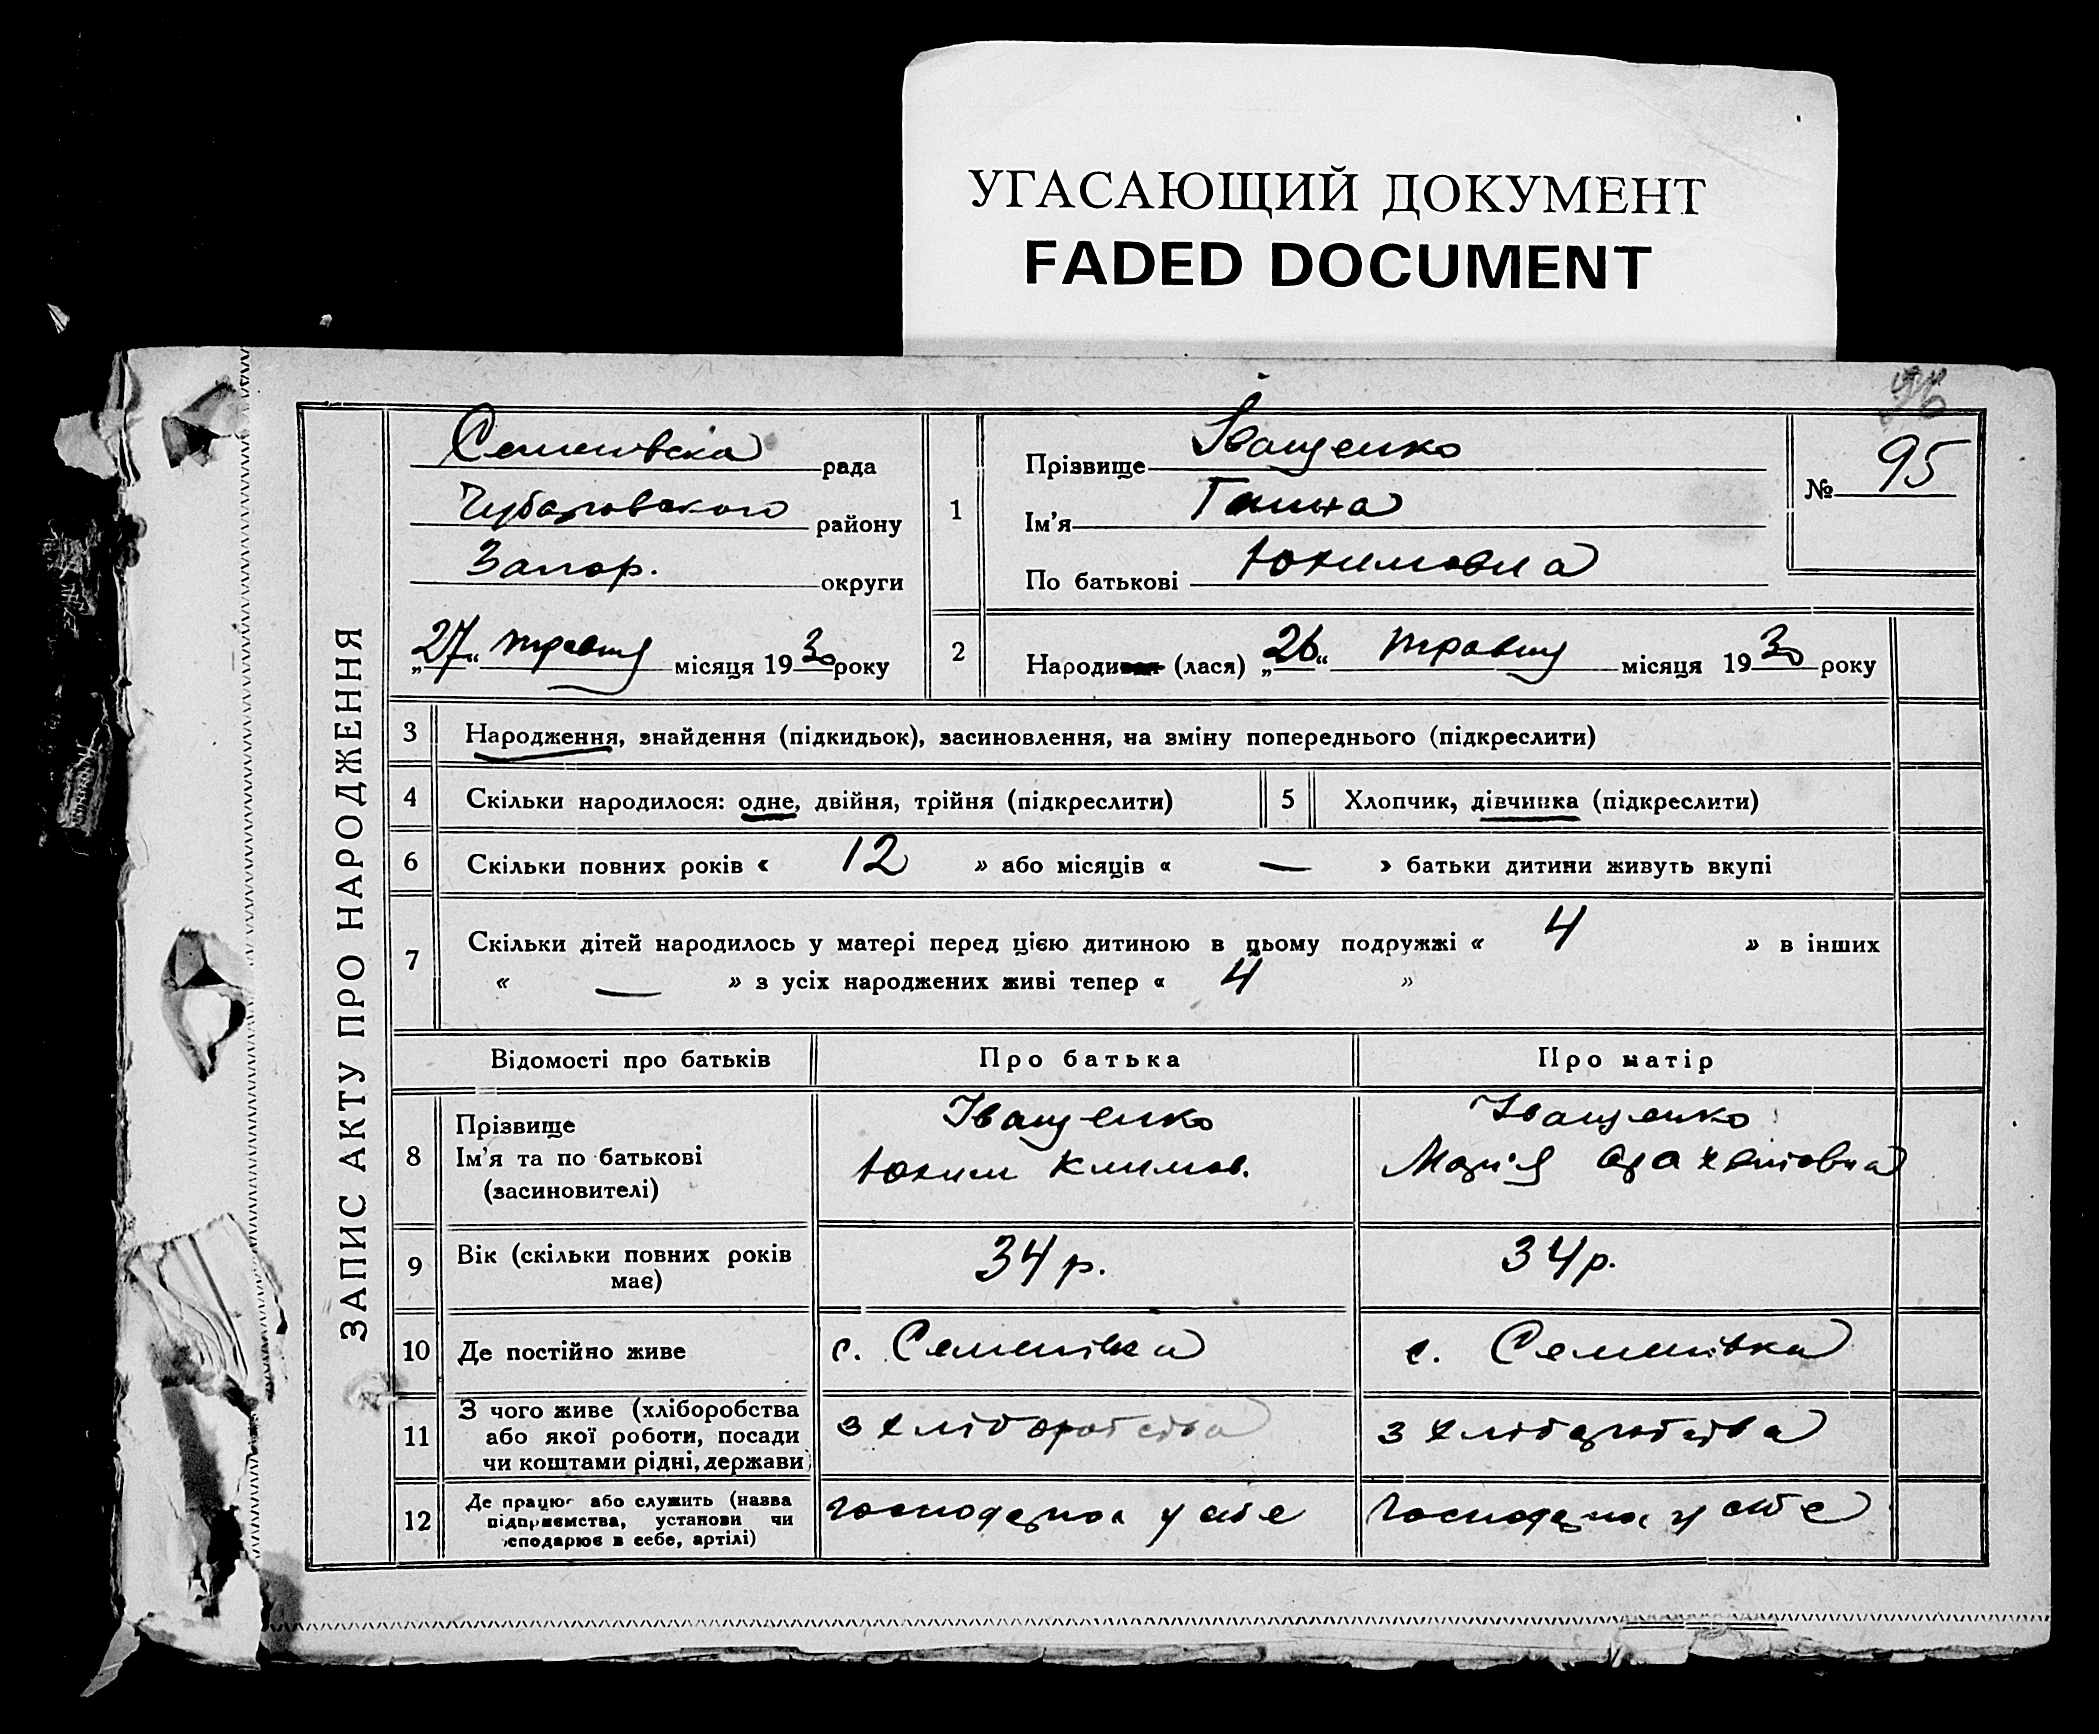 УГАСАЮЩИЙ ДОКУМЕНТ
FADED DOCUMENT
ЗАПИС АКТУ ПРО НАРОДЖЕННЯ
Семенівська рада
Чубарівського району
Запор. округи
„27“ травня місяця 1930 року
1
Прізвище Іващенко
Ім'я Ганна
По батькові Юхимовна
№ 95
2
Народився (лася) „26“ травня місяця 1930 року
3 Народження, знайдення (підкидьок), засиновлення, на зміну попереднього (підкреслити)
4 Скільки народилося: одне, двійня, трійня (підкреслити)
5 Хлопчик, дівчинка (підкреслити)
6 Скільки повних років « 12 » або місяців « — » батьки дитини живуть вкупі
7 Скільки дітей народилось у матері перед цією дитиною в цьому подружжі « 4 » в інших
« — » з усіх народжених живі тепер « 4 »
Відомості про батьків
Про батька
Про матір
8
Прізвище
Ім'я та по батькові
(засиновителі)
Іващенко
Юхим Климов.
Іващенко
Марія
9
Вік (скільки повних років
має)
34 р.
34 р.
10 Де постійно живе
с. Семенівка
с. Семенівка
11
З чого живе (хліборобства
або якої роботи, посади
чи коштами рідні, держави
з хліборобства
з хліборобства
12
Де працює або служить (назва
підприємства, установи чи
сподарює в себе, артілі)
господарює у себе
господарює у себе